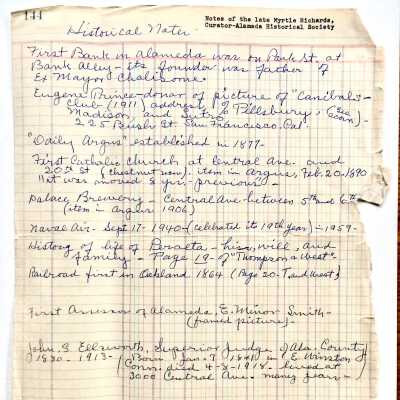 144
Notes of the late Myrtle Richards,
Curator-Alameda Historical Society
Historical Notes
First Bank in Alameda was on Park St. at
Bank Alley - Its founder was father of
Ex Mayor
Eugene Prince - donor of picture of "Canibals-
Club (1911) address, % Pillsbury,
Madison, and Sutro
225 Bush St San Francisco, Cal.
"Daily Argus" established in 1877-
First Catholic Church at Central Ave. and
20th St (Chestnut now). item in Argus, Feb. 20-1890
that was moved 8 yrs- previous-
Palace Brewery - Central Ave. between 5th and 6th
(item in Argus 1906)
Naval Air- Sept. 17- 1940- (celebrated its 19th year) - 1959-
History of life of Peralta - his, will, and
family - Page 19- of "Thompson & West"-
Railroad first in Oakland 1864 (Page 20- T. and West)
First Assessor of Alameda, E. Minor Smith-
(framed picture)-
John. S. Ellsworth, Superior Judge of Ala. County
1880 - 1913- (Born Jan. 7 1841 in E. Winston
Conn. died 4-3-1918- lived at
3000 Central Ave. many years-